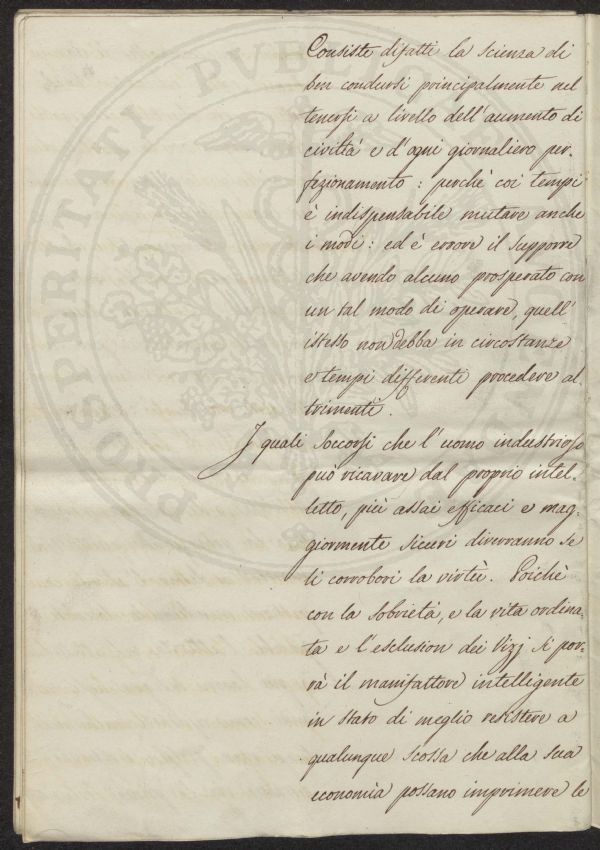 Consiste difatti la scienza di
ben condursi principalmente nel
tenersi a livello dell'aumento di
civiltà e d'ogni giornaliero per-
fezionamento : perchè coi tempi
è indispensabile mutare anche
i modi : ed è errore il supporre
che avendo alcuno prosperato con
un tal modo di operare, quell'
istesso non debba in circostanze
e tempi differenti procedere al
trimenti.
I quali soccorsi che l'uomo industrioso
può ricavare dal proprio intel-
letto, più assai efficaci e mag-
giormente sicuri diverranno se
li corrobori la virtù. Poichè
con la sobrietà, e la vita ordina-
ta e l'esclusion dei Vizj si por-
rà il manifattore intelligente
in stato di meglio resistere a
qualunque scossa che alla sua
economia possano imprimere le
PROSPERITATI PUB